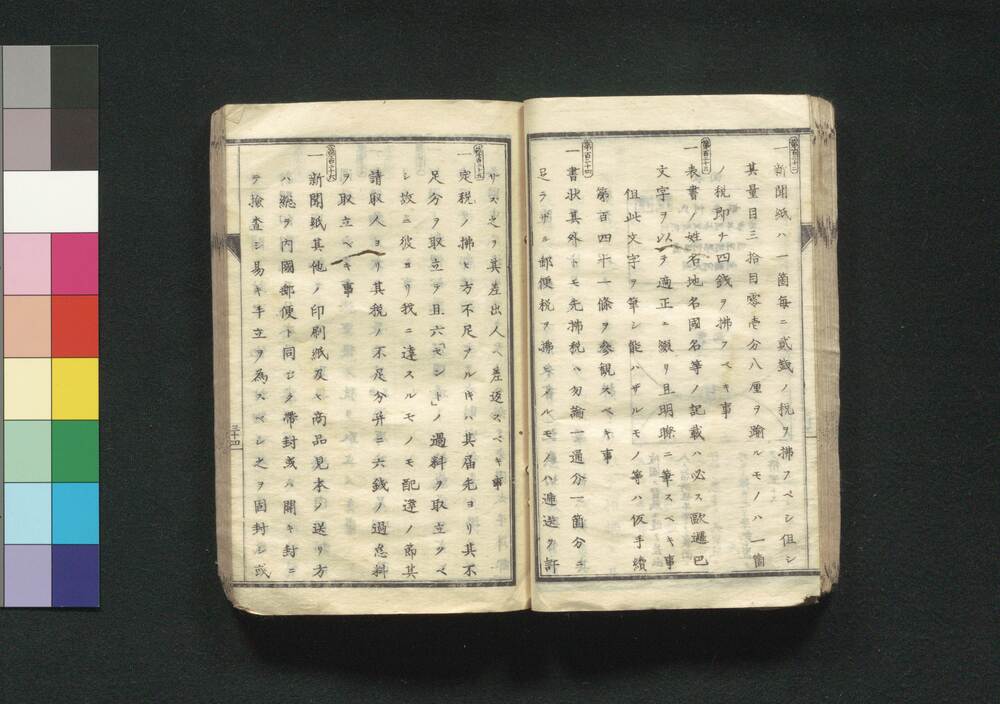 第百三十二
一新聞紙ハ一箇毎ニ貳錢ノ税ヲ拂フベシ但シ
其量目三拾目零壱分八厘ヲ踰ルモノハ一箇
ノ税即チ四錢ヲ拂フベキ事
第百三十三
一表書ノ姓名地名國名等ノ記載ハ必ス歐邏巴
文字ヲ以テ適正ニ綴リ且明瞭ニ筆スベキ事
但此文字ヲ筆シ能ハザルモノ等ハ仮手續
第百四十一條ヲ參観スベキ事
第百三十四
一書状其外トモ先拂税ハ勿論一通分一箇分ニ
足ラザル郵便税ヲ拂ヒアルモノハ逓送ヲ許
サス之ヲ其差出人ヘ差返スベキ事
第百三十五
一定税ノ拂ヒ方不足ナルキハ其届先ヨリ其不
足分ヲ取立テ且六「セント」ノ過料ヲ取立ツベ
シ故ニ彼ヨリ我ニ達スルモノモ配達ノ節其
請取人ヨリ其税ノ不足分并ニ六錢ノ過怠料
ヲ取立ベキ事
第百三十六
一新聞紙其他ノ印刷紙及ヒ商品見本ノ送リ方
ハ總テ内國郵便ト同シク帶封或ハ開キ封ニ
テ撿査シ易キ手立ヲ為スベシ之ヲ固封シ或
三十四